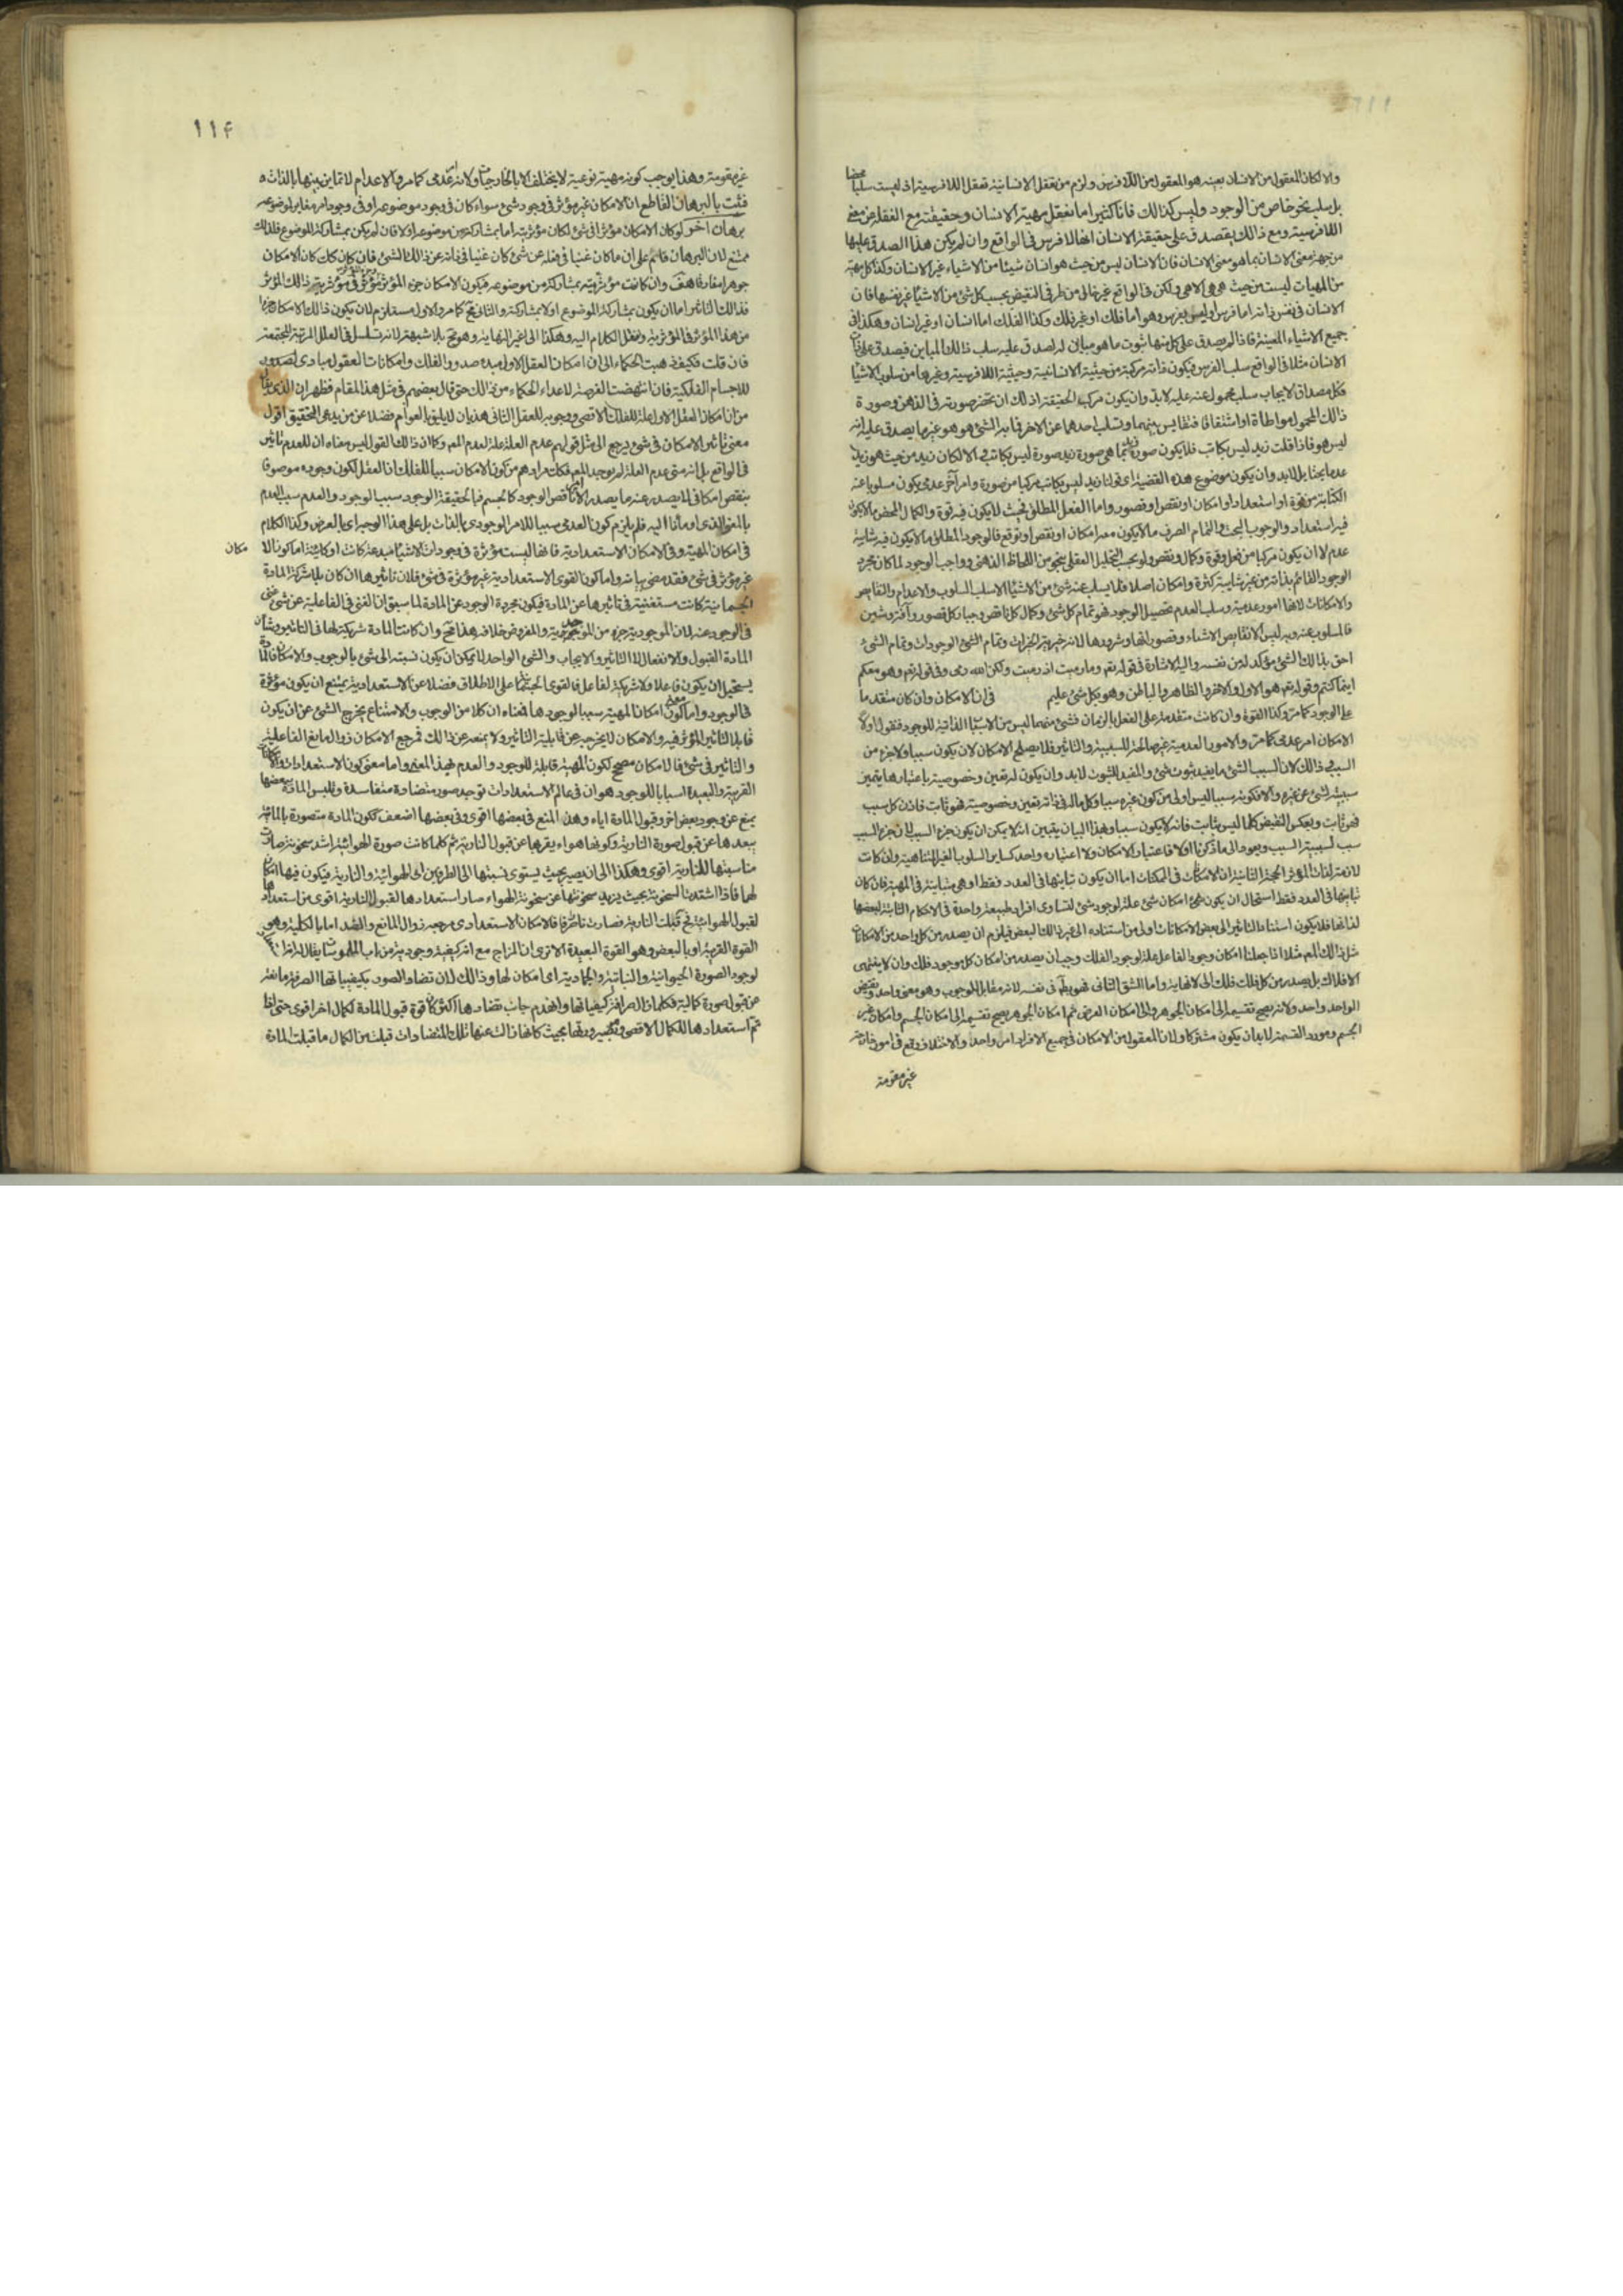 والا لكان المعقول من الانسان بعينه هو المعقول من اللافرس ولزم من تعقل الانسانية تعقل اللافرسية اذ ليست سلبا محضا
بل سلب نحو خاص من الوجود وليس كذلك فانا كثيرا ما نعقل مهية الانسان وحقيقته مع الغفلة عن معنى
اللافرسية ومع ذالك يصدق على حقيقة الانسان انها لا فرس فى الواقع وان لم يكن هذا الصدق عليها
من جهة معنى الانسان بما هو معنى الانسان فان الانسان ليس من حيث هو انسان شيئا من الاشياء غير الانسان وكذا كل مهية
من المهيات ليست من حيث هى هى الا هى ولكن فى الواقع غير خالى من طرفى النقيض بحسب كل شئ من الاشيا غير نفسها فان
الانسان فى نفس ذاته اما فرس او ليس بفرس وهو اما فلك او غير فلك وكذا الفلك اما انسان او غير انسان وهكذا فى
جميع الاشياء المعينة فاذا لم يصدق على كل منها ثبوت ما هو مباين له لصدق عليه سلب ذالك المباين فيصدق على ذات
الانسان مثلا فى الواقع سلب الفرس فيكون ذاته مركبة من حيثية الانسانية وحيثية اللافرسية وغيرها من سلوب الاشيا
فكل مصداق لايجاب سلب محمول عنه عليه لا بد وان يكون مركب الحقيقة اذ لك ان تحضر صورته فى الذهن وصورة
ذالك المحمول مواطاة او اشتقاقا فتقايس بينهما وتسلب احدهما عن الاخر فما به الشئ هو هو غير ما يصدق عليه انه
ليس هو فاذا قلت زيد ليس بكاتب فلا يكون صورة زيد بما هى صورة زيد صورة ليس بكاتب والا لكان زيد من حيث هو زيد
عدما بحتا بل لا بد وان يكون موضوع هذه القضية اى قولنا زيد ليس بكاتب مركبا من صورة وامر آخر عدمى يكون مسلوبا عنه
الكتابة من قوة او استعداد او امكان او نقص او قصور واما الفعل المطلق فحيث لا يكون فيه قوة والكمال المحض ما لا يكون
فيه استعداد والوجوب البحت والتمام الصرف ما لا يكون معه امكان او نقص او توقع فالوجود المطلق ما لا يكون فيه شايبة
عدم الا ان يكون مركبا من فعل وقوة وكمال ونقص ولو بحسب التحليل العقلى بنحو من اللحاظ الذهنى وواجب الوجود لما كان مجرد
الوجود القائم بذاته من غير شايبة كثرة وامكان اصلا فلا يسلب عنه شئ من الاشيا الا سلب السلوب والاعدام والنقايص
والامكانات لانها امور عدمية وسلب العدم تحصيل الوجود فهو تمام كل شئ وكمال كل ناقص وجبار كل قصور وآفة وشين
فالمسلوب عنه وبه ليس الا نقايص الاشياء وقصوراتها وشرورها لانه خيرية الخيرات وتمام الشئ الوجودات وتمام الشئ
احق بذالك الشئ مؤكد له من نفسه واليه الاشارة فى قوله تعم وما رميت اذ رميت ولكن الله رمى وفى قوله تعم وهو معكم
اينما كنتم وقوله تعم هو الاول والاخر والظاهر والباطن وهو بكل شئ عليم فى ان الامكان وان كان متقدما
على الوجود كما مر وكذا القوة وان كانت متقدمة على الفعل بالزمان فشئ منهما ليس من الاسباب الذاتية للوجود فنقول اولا
الامكان امر عدمى كما مر والامور العدمية غير صالحة للسببية والتاثير فلا يصلح الامكان لان يكون سببا ولا جزء من
السبب وذالك لان السبب الشئ ما يفيد ثبوت شئ والمفيد للثبوت لا بد وان يكون له تعين وخصوصية باعتبارها يتميز
سببيته لشئ عن غيره والا فكونه سببا ليس اولى من كون غيره سببا وكل ما له فى ذاته تعين وخصوصية فهو ثابت فاذن كل سبب
فهو ثابت وبعكس النقيض كلما ليس بثابت فانه لا يكون سببا وبهذا البيان يتبين انه لا يمكن ان يكون جزء السبب لان جزء السبب
سبب لسببية السبب ويعود الى ما ذكرنا اولا فاعتبار الامكان ولا اعتباره واحد كساير السلوب الغير المتناهية وان كانت
لازمة لذات المؤثر الحجة الثانية ان الامكانات فى الممكنات اما ان يكون تباينها فى العدد فقط او هى متباينة فى المهية فان كان
تباينها فى العدد فقط استحال ان يكون شئ امكان شئ علة لوجود شئ لتساوى افراد طبيعة واحدة فى الاحكام الثابتة لبعضها
لذاتها فلا يكون استناد التاثير الى بعض الامكانات اولى من استناده الى غير ذالك البعض فيلزم ان يصدر من كل واحد من الامكانات
مثل ذالك الم مثلا اذا جعلنا امكان وجود الفاعل علة لوجود الفلك وجب ان يصدر من امكان كل موجود فلك وان لا ينتهى
الافلاك بل يصدر من كل فلك فلك الى لا نهاية واما الشق الثانى فهو بط فى نفسه لانه مقابل الوجوب وهو معنى واحد ونقيض
الواحد واحد ولانه يصح تقسيمه الى امكان الجوهر والى امكان العرض ثم امكان الجوهر يصح تقسيمه الى امكان الجسم وامكان غير
الجسم ومورد القسمة لا بد ان يكون مشتركا ولان المعقول من الامكان فى جميع الافراد امر واحد والاختلاف وقع فى امور خارجة
غير مقومة
١١٤
غير مقومة وهذا يوجب كونه مهية نوعية لا يختلف الا بالخارجيات ولانه امر عدمى كما مر والاعدام لا تمايز بينها بالذات
فثبت بالبرهان القاطع ان الامكان غير مؤثر فى وجود شئ سواء كان فى وجود موضوعه او فى وجود امر مغاير لموضوعه
برهان آخر لو كان الامكان مؤثرا فى شئ لكان مؤثريته اما بمشاركة من موضوعه او لا فان لم يكن بمشاركة الموضوع فذلك
ممتنع لان البرهان قائم على ان ما كان غنيا فى فعله عن شئ كان غنيا فى ذاته عن ذالك الشئ فان كان كك كان الامكان
جوهرا مفارقا هف وان كانت مؤثريته بمشاركة من موضوعه فيكون الامكان جزء المؤثر وجزء المؤثر مؤثر فى مؤثرية ذالك المؤثر
فذالك التاثير اما ان يكون بمشاركة الموضوع او لا بمشاركته والثانى مح كما مر والاول مستلزم لان يكون ذالك الامكان جزءا
من هذا المؤثر فى المؤثرية وننقل الكلام اليه وهكذا الى غير النهاية وهو مح بلا شبهة لانه تسلسل فى العلل المرتبة المجتمعة
فان قلت فكيف ذهبت الحكماء الى ان امكان العقل الاول مبدء صدور الفلك وامكانات العقول مبادى لصدور
للاجسام الفلكية فان انتهضت الفرصة لاعداء الحكماء من ذالك حتى قال بعضهم فى مثل هذا المقام فظهر ان الذى يقال
من ان امكان العقل الاول علة للفلك الاقصى ووجوبه للعقل الثانى هذيان لا يليق بالعوام فضلا عن من يدعى التحقيق اقول
معنى تاثير الامكان فى شئ يرجع الى مثل قولهم عدم العلة علة لعدم المعم وكما ان ذالك القول ليس معناه ان للعدم تاثير
فى الواقع بل انه متى عدم العلة لم يوجد المعم فكذا مرادهم من كون الامكان سببا للفلك ان العقل لكون وجوده موصوفا
بنقص امكانى لا يصدر عنه ما يصدر الا ناقص الوجود كالجسم فبالحقيقة الوجود سبب الوجود والعدم سبب العدم
بالمعنى الذى اومأنا اليه فلم يلزم كون العدمى سببا للامر الوجودى بالذات بل على هذا الوجه اى بالعرض وكذا الكلام
فى امكان المهية وفى الامكان الاستعدادية فانها ليست مؤثرة فى وجودات الاشيا مبدعة كانت او كائنة اما كون الا
مكان
غير مؤثر فى شئ فقد مضى بيانه واما كون القوى الاستعدادية غير مؤثرة فى شئ فلان تاثيرها ان كان بلا شركة المادة
الجسمانية كانت مستغنية فى تاثيرها عن المادة فيكون مجردة الوجود عن المادة لما سبق ان الغنى فى الفاعلية عن شئ غنى
فى الوجود عنه لان الموجودية جزء من الموجدية والمفروض خلافه هذا مح وان كانت المادة شريكة لها فى التاثير وشان
المادة القبول والانفعال لا التاثير والايجاب والشئ الواحد لا يمكن ان يكون نسبته الى شئ بالوجوب والامكان فالمادة
يستحيل ان يكون فاعلا ولا شريكة لفاعل فالقوى الجسمانية على الاطلاق فضلا عن الاستعدادية يمتنع ان يكون مؤثرة
فى الوجود واما معنى كون امكان المهية سببا لوجودها فمعناه ان كلا من الوجوب والامتناع يخرج الشئ عن ان يكون
قابلا لتاثير المؤثر فيه والامكان لا يخرجه عن قابلية التاثير ولا يمنعه عن ذالك فمرجع الامكان زوال مانع الفاعلية
والتاثير فى شئ فالامكان مصحح لكون المهية قابلة للوجود والعدم فهذا المعنى واما معنى كون الاستعدادات والامكانات
القريبة والبعيدة اسبابا للوجود هو ان فى عالم الاستعدادات توجد صور متضادة متفاسدة وتلبس المادة ببعضها
يمنع عن وجود بعض اخر وقبول المادة اياه وهذا المنع فى بعضها اقوى وفى بعضها اضعف ككون المادة متصورة بالمائية
يبعدها عن قبول صورة النارية وكونها هواء يقربها عن قبول النارية ثم كلما كانت صورة الهوائية اشد سخونة صارت
مناسبتها للنارية اقوى وهكذا الى ان يصير بحيث يستوى نسبتها الى الطرفين الى الهوائية والنارية فيكون فيها امكان
لهما فاذا اشتدت السخونة بحيث تزيد سخونتها عن سخونة الهواء صار استعدادها لقبول النارية اقوى من استعدادها
لقبول الهوائية ثم قبلت النارية فصارت نارا صرفا فالامكان الاستعدادى مرجعه زوال المانع والضد اما بالكلية وهو
القوة القريبة او بالبعض وهو القوة البعيدة الا ترى ان المزاج مع انه كيفية وجودية من باب الملموسات يقال له انه امكان
لوجود الصورة الحيوانية والنباتية والجمادية اى امكان لها وذالك لان تضاد الصور بكيفياتها الصرفة مانعة
عن قبول صورة كمالية فكلما زال صرافة كيفياتها وانهدم جانب تضادها اكثر كان قوة قبول المادة لكمال اخر اقوى حتى اذا
تم استعدادها للكمال الاقصى وتصير صورتها بحيث كانها زالت عنها تلك المتضادات قبلت من الكمال ما قبلت المادة